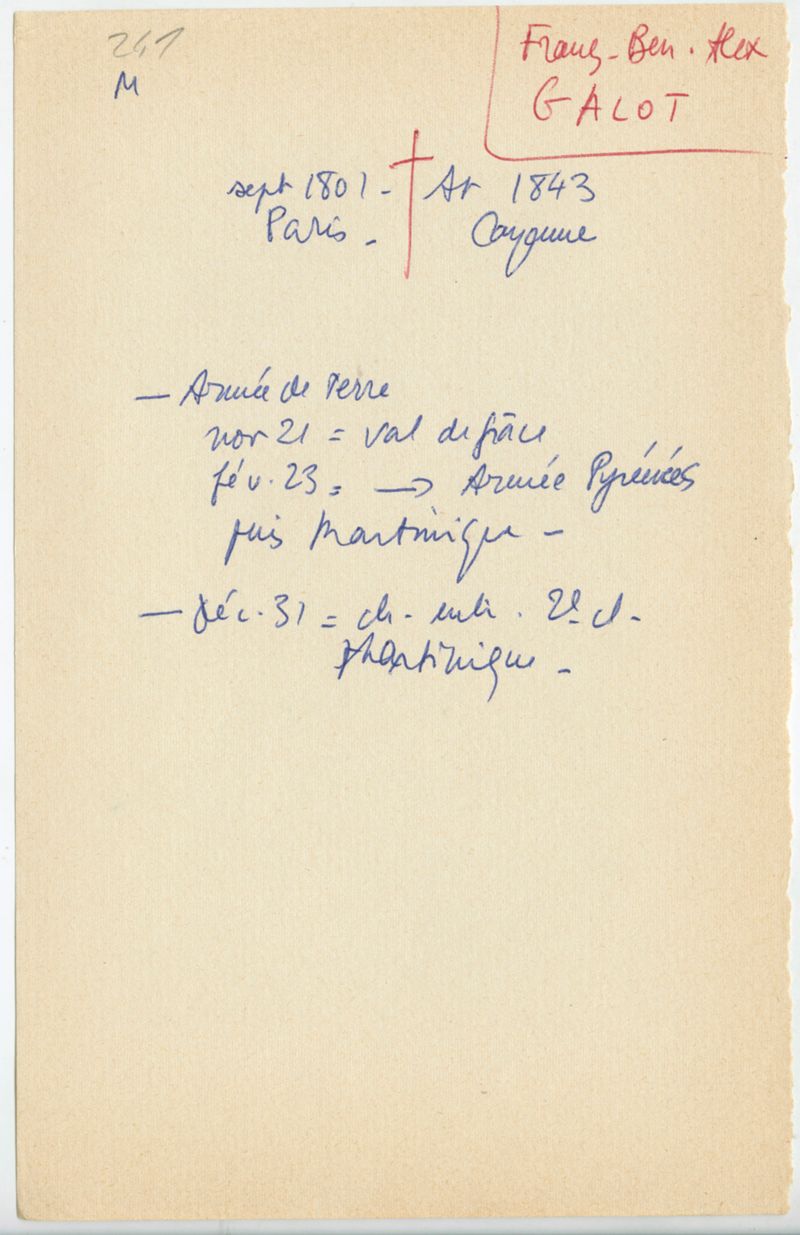 241
M
Franç-Ben. Alex
GALOT
sept 1801 - † At 1843
Paris - Cayenne
— Armée de Terre
nov 21 = Val de grâce
fév. 23 = → Armée Pyrénées
puis Martinique -
— Déc. 31 = ch. entr. 2e cl -
Martinique -